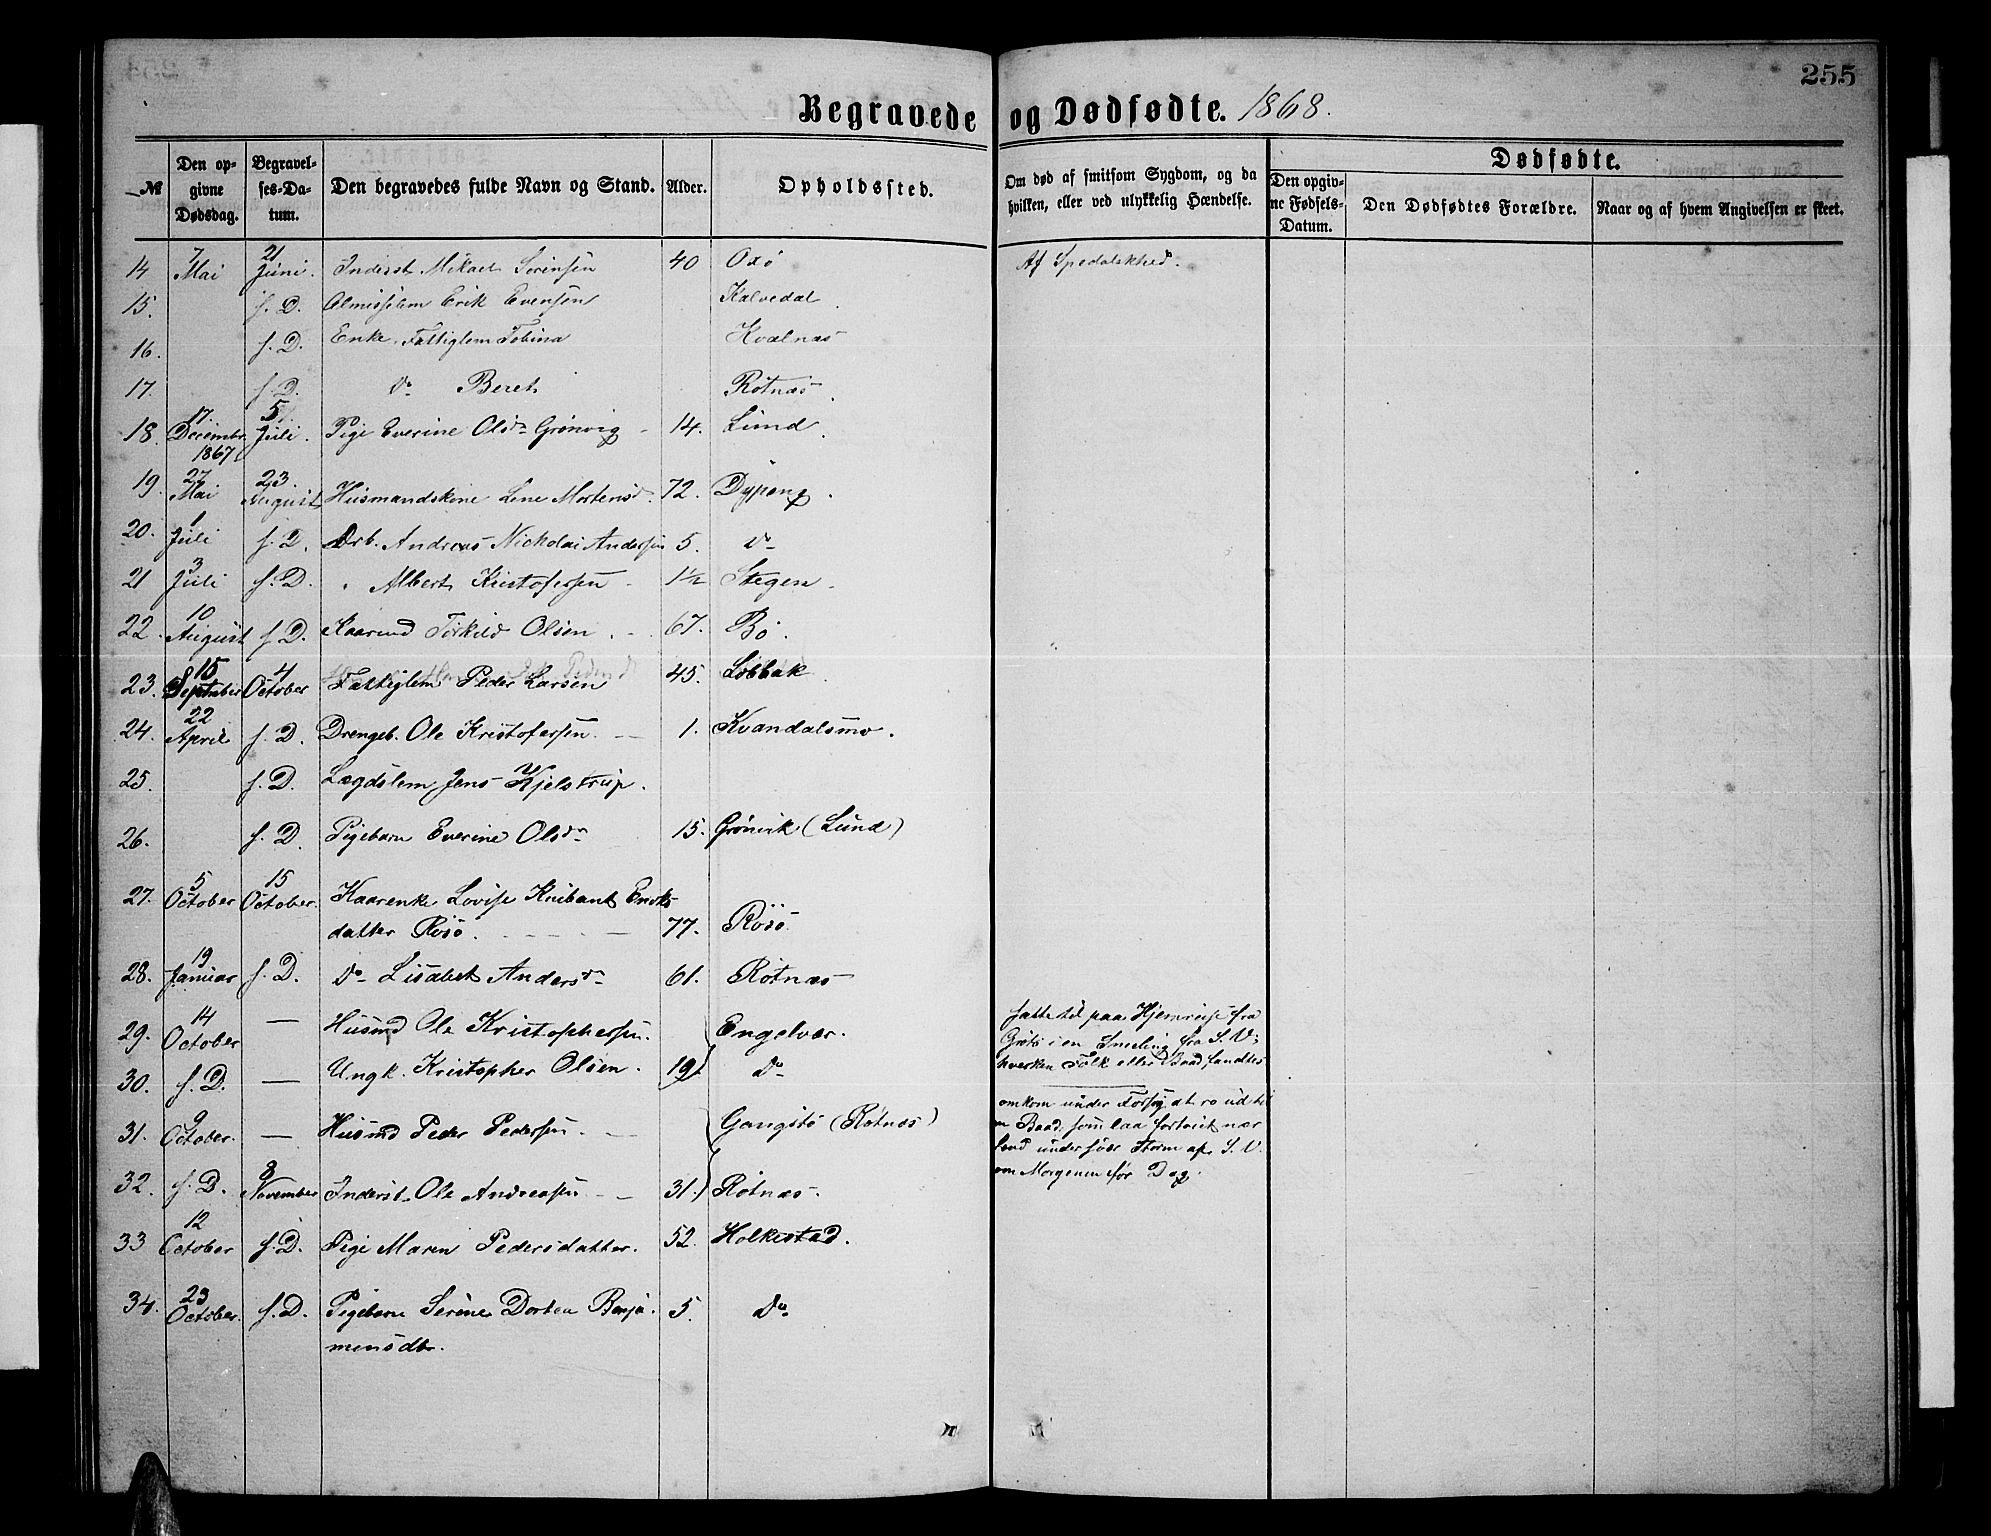 255
Begravede og Dødfødte. 1868.
№ Den opgivne Dødsdag. Begravelses-Datum. Den begravedes fulde Navn og Stand. Alder. Opholdssted. Om død af smitsom Sygdom, og da hvilken, eller ved ulykkelig Hændelse. Dødfødte. Den opgivne Fødsels-Datum. Den Dødfødtes Forældre. Naar og af hvem Angivelsen er skeet.
14 7 Mai 21 Juni. Inderst Mikael Sørensen 40 Oxø Af Spedalskhed.
15. s. D. Olmisselem Erik Evensen Kalvedal
16. s. D. Enke, Fattiglem Tobina Kvalnæs
17. s. D. do Beret Røtnæs
18. 17. Decembr 1867 5 Juli. Pige Everine Olsdr Grønvig 14. Lund
19. 27 Mai 23. August Husmandskone Lene Mortensd. 72. Dyping.
20. 1 Juli s. D. Drb. Andreas Nickolai Andersen 5. do
21 3 Juli s. D. " Albert Kristofersen 1½ Stegen
22. 10 August s. D. Kaarmd Torkild Olsen. 67. Bø.
23. 15 September 4 October Fattiglem Peder Larsen 45. Løbbak
24. 22 April s. D. Drengeb. Ole Kristofersen. 1. Kvandalsmo.
25. s. D. Lægdslem Jens Kjelstrup.
26. s. D. Pigebarn Everine Olsdr 15. Grønvik (Lund)
27. 5 October 15 October. Kaarenke Lovise Knibant Eriks
datter Røsø. 77. Røsø
28. 19 Januar s. D. do Lisabet Andersdr 61. Røtnæs
29. 14 October — Husmd Ole Kristophersen. Engelvær.
30. s. D. — Ungk. Kristopher Olsen. 19. do
satte til paa Hjemreise fra
Grøtø i en Snesling fra S. V;
hverken Folk eller Baad fandtes
31. 9 October. — Husmd Peder Pedersen. Gangstø (Røtnæs)
32. s. D. 8 November Inderst Ole Andreasen 31. Røtnæs.
omkom under Forsøg at ro ud til
en Baad, som laa fortøiet nær
Land under svær Storm af S. V.
om Morgenen før Dag.
33 12 October s. D. Pige Maren Pedersdatter. 52. Holkestad.
34. 23 October. s. D. Pigebarn Serine Dortea Benja-
minsdtr. 5. do